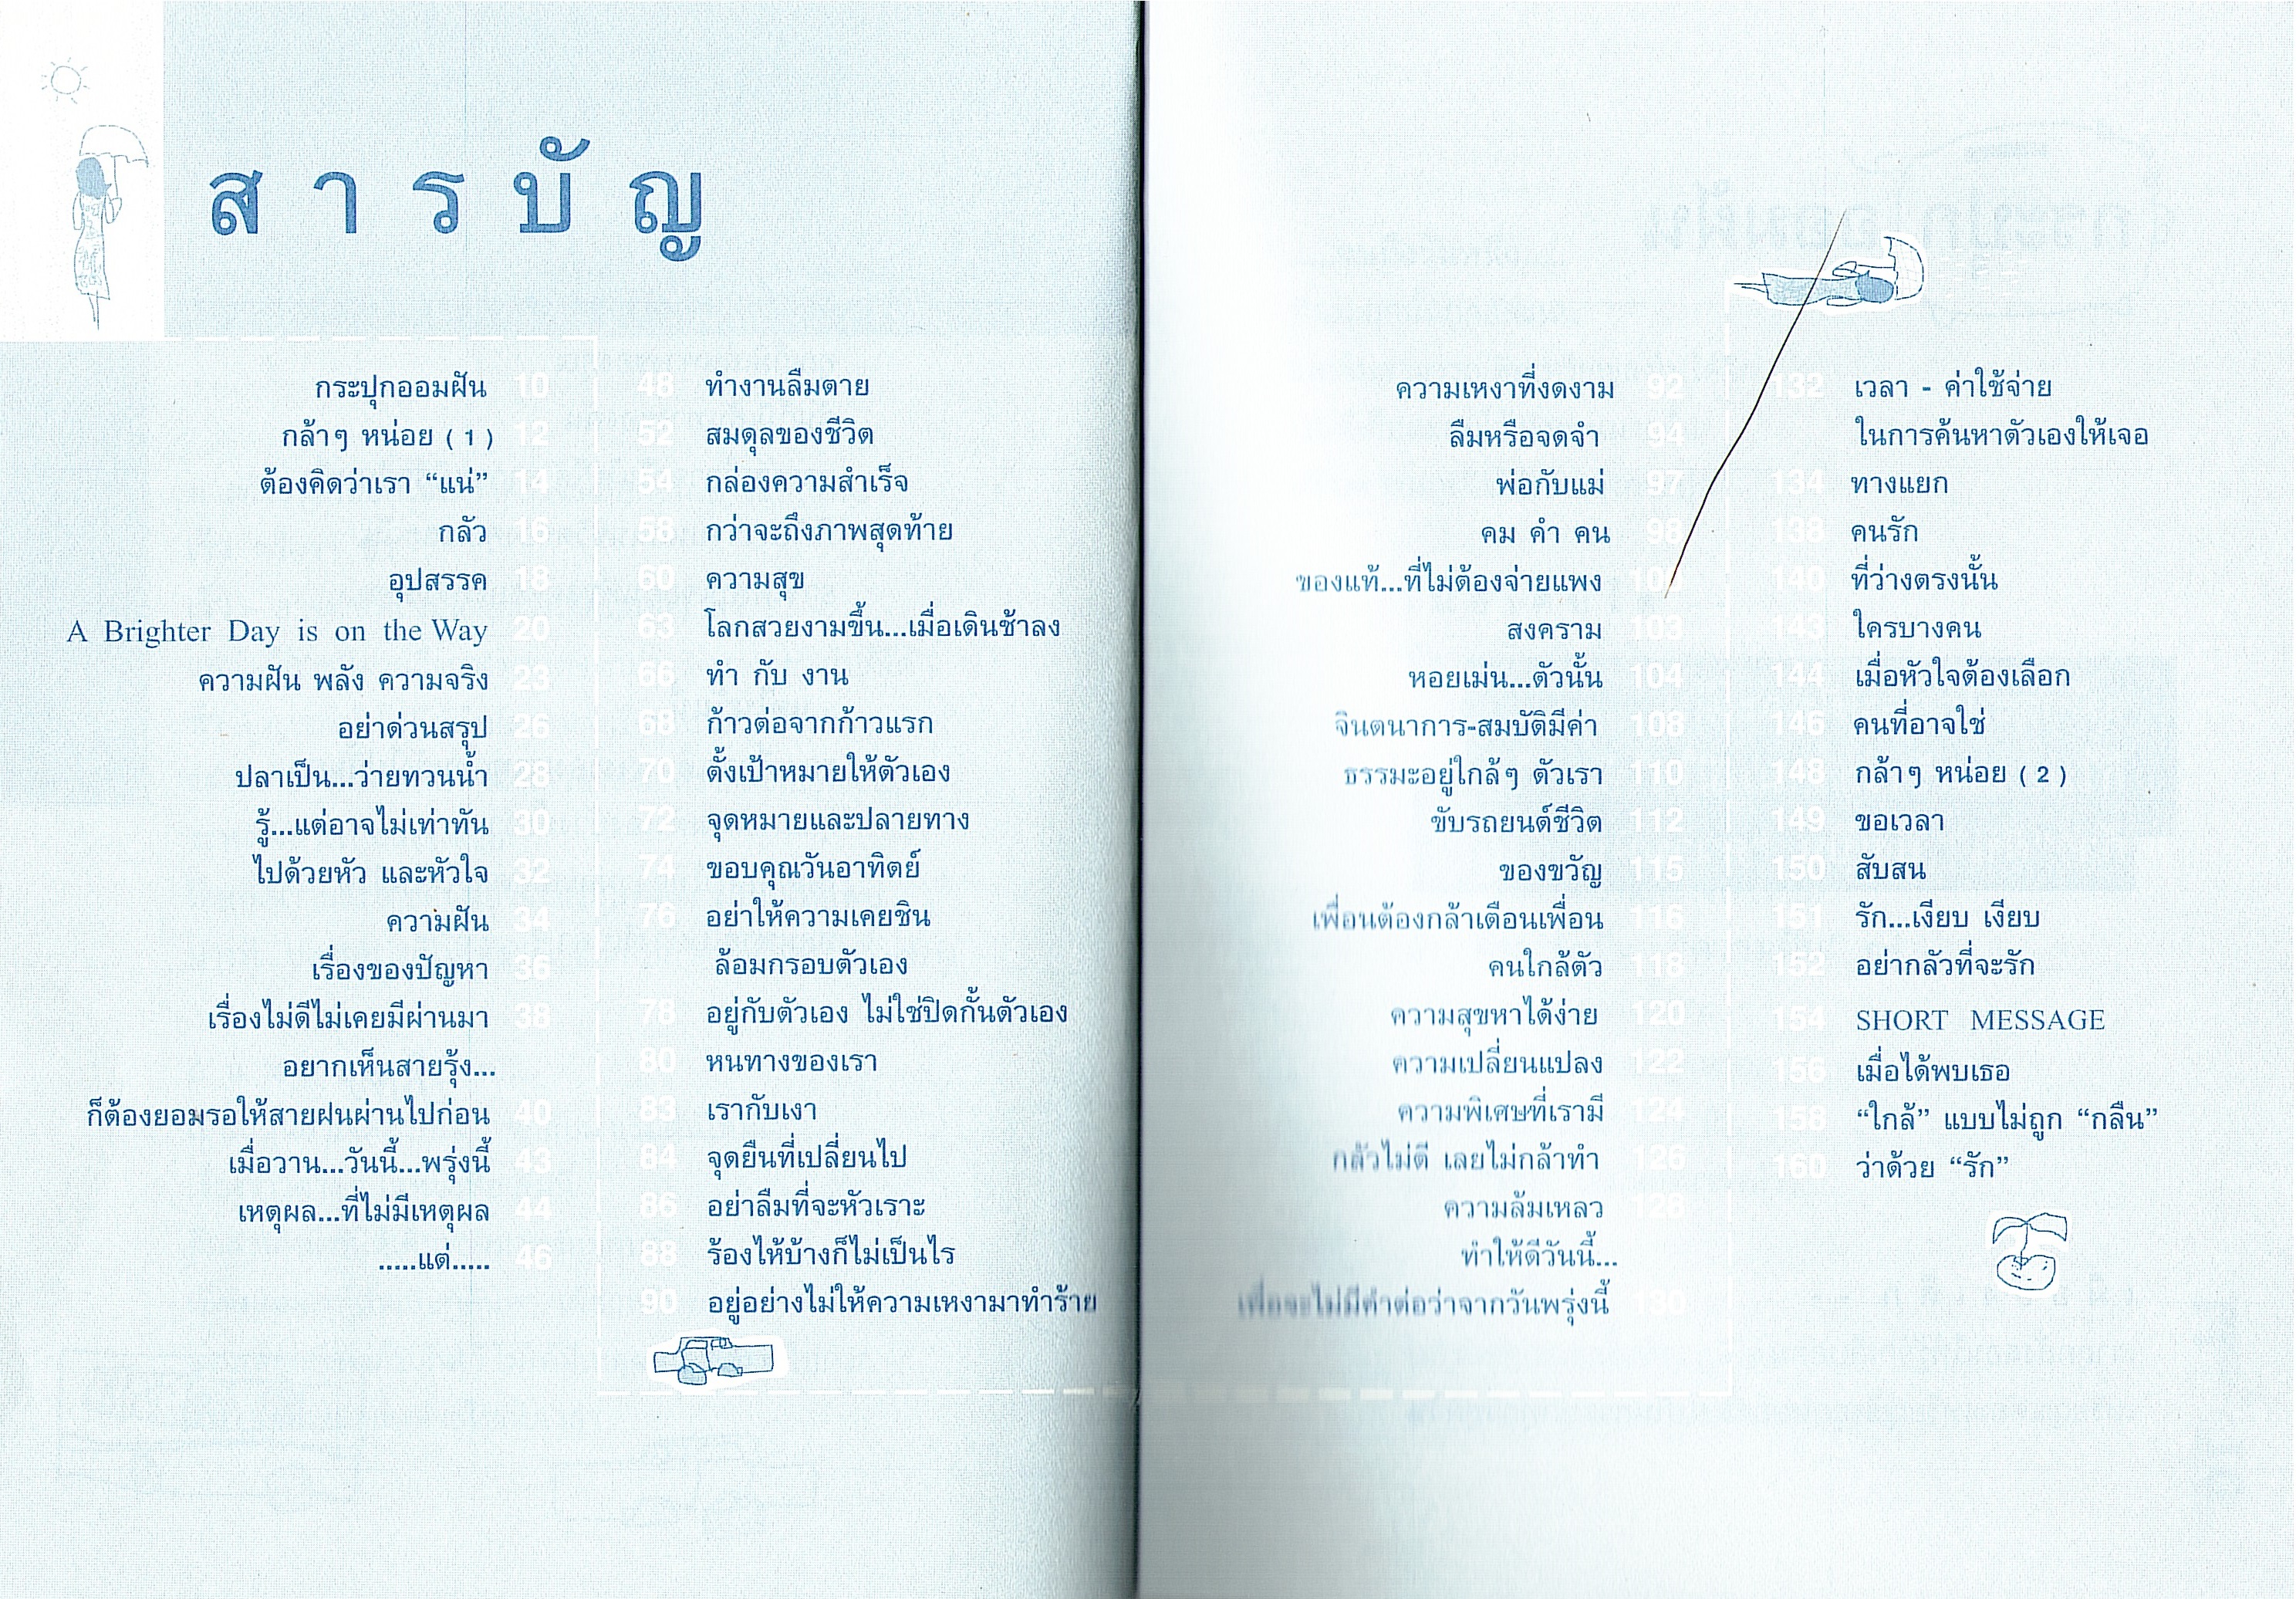 สารบัญ
กระปุกออมฝัน 10
กล้าๆ หน่อย ( 1 ) 12
ต้องคิดว่าเรา “แน่” 14
กลัว 16
อุปสรรค 18
A Brighter Day is on the Way 20
ความฝัน พลัง ความจริง 23
อย่าด่วนสรุป 26
ปลาเป็น...ว่ายทวนน้ำ 28
รู้...แต่อาจไม่เท่าทัน 30
ไปด้วยหัว และหัวใจ 32
ความฝัน 34
เรื่องของปัญหา 36
เรื่องไม่ดีไม่เคยมีผ่านมา 38
อยากเห็นสายรุ้ง...
ก็ต้องยอมรอให้สายฝนผ่านไปก่อน 40
เมื่อวาน...วันนี้...พรุ่งนี้ 43
เหตุผล...ที่ไม่มีเหตุผล 44
.....แด่..... 46
48 ทำงานลืมตาย
52 สมดุลของชีวิต
54 กล่องความสำเร็จ
58 กว่าจะถึงภาพสุดท้าย
60 ความสุข
63 โลกสวยงามขึ้น...เมื่อเดินช้าลง
66 ทำ กับ งาน
68 ก้าวต่อจากก้าวแรก
70 ตั้งเป้าหมายให้ตัวเอง
72 จุดหมายและปลายทาง
74 ขอบคุณวันอาทิตย์
76 อย่าให้ความเคยชิน
ล้อมกรอบตัวเอง
78 อยู่กับตัวเอง ไม่ใช่ปิดกั้นตัวเอง
80 หนทางของเรา
83 เรากับเงา
84 จุดยืนที่เปลี่ยนไป
86 อย่าลืมที่จะหัวเราะ
88 ร้องไห้บ้างก็ไม่เป็นไร
90 อยู่อย่างไม่ให้ความเหงามาทำร้าย
ความเหงาที่งดงาม 92
ลืมหรือจดจำ 94
พ่อกับแม่ 97
คม คำ คน 98
ของแท้...ที่ไม่ต้องจ่ายแพง
สงคราม 103
หอยเม่น...ตัวนั้น 104
จินตนาการ-สมบัติมีค่า 108
ธรรมะอยู่ใกล้ๆ ตัวเรา 110
ขับรถยนต์ชีวิต 112
ของขวัญ 115
เพื่อนต้องกล้าเตือนเพื่อน 116
คนใกล้ตัว 118
ความสุขหาได้ง่าย 120
ความเปลี่ยนแปลง 122
ความพิเศษที่เรามี 124
กลัวไม่ดี เลยไม่กล้าทำ 126
ความล้มเหลว 128
ทำให้ดีวันนี้...
เพื่อจะไม่มีคำต่อว่าจากวันพรุ่งนี้ 130
132 เวลา - ค่าใช้จ่าย
ในการค้นหาตัวเองให้เจอ
134 ทางแยก
138 คนรัก
140 ที่ว่างตรงนั้น
143 ใครบางคน
144 เมื่อหัวใจต้องเลือก
146 คนที่อาจใช่
148 กล้าๆ หน่อย ( 2 )
149 ขอเวลา
150 สับสน
151 รัก...เงียบ เงียบ
152 อย่ากลัวที่จะรัก
154 SHORT MESSAGE
156 เมื่อได้พบเธอ
158 “ใกล้” แบบไม่ถูก “กลืน”
160 ว่าด้วย “รัก”